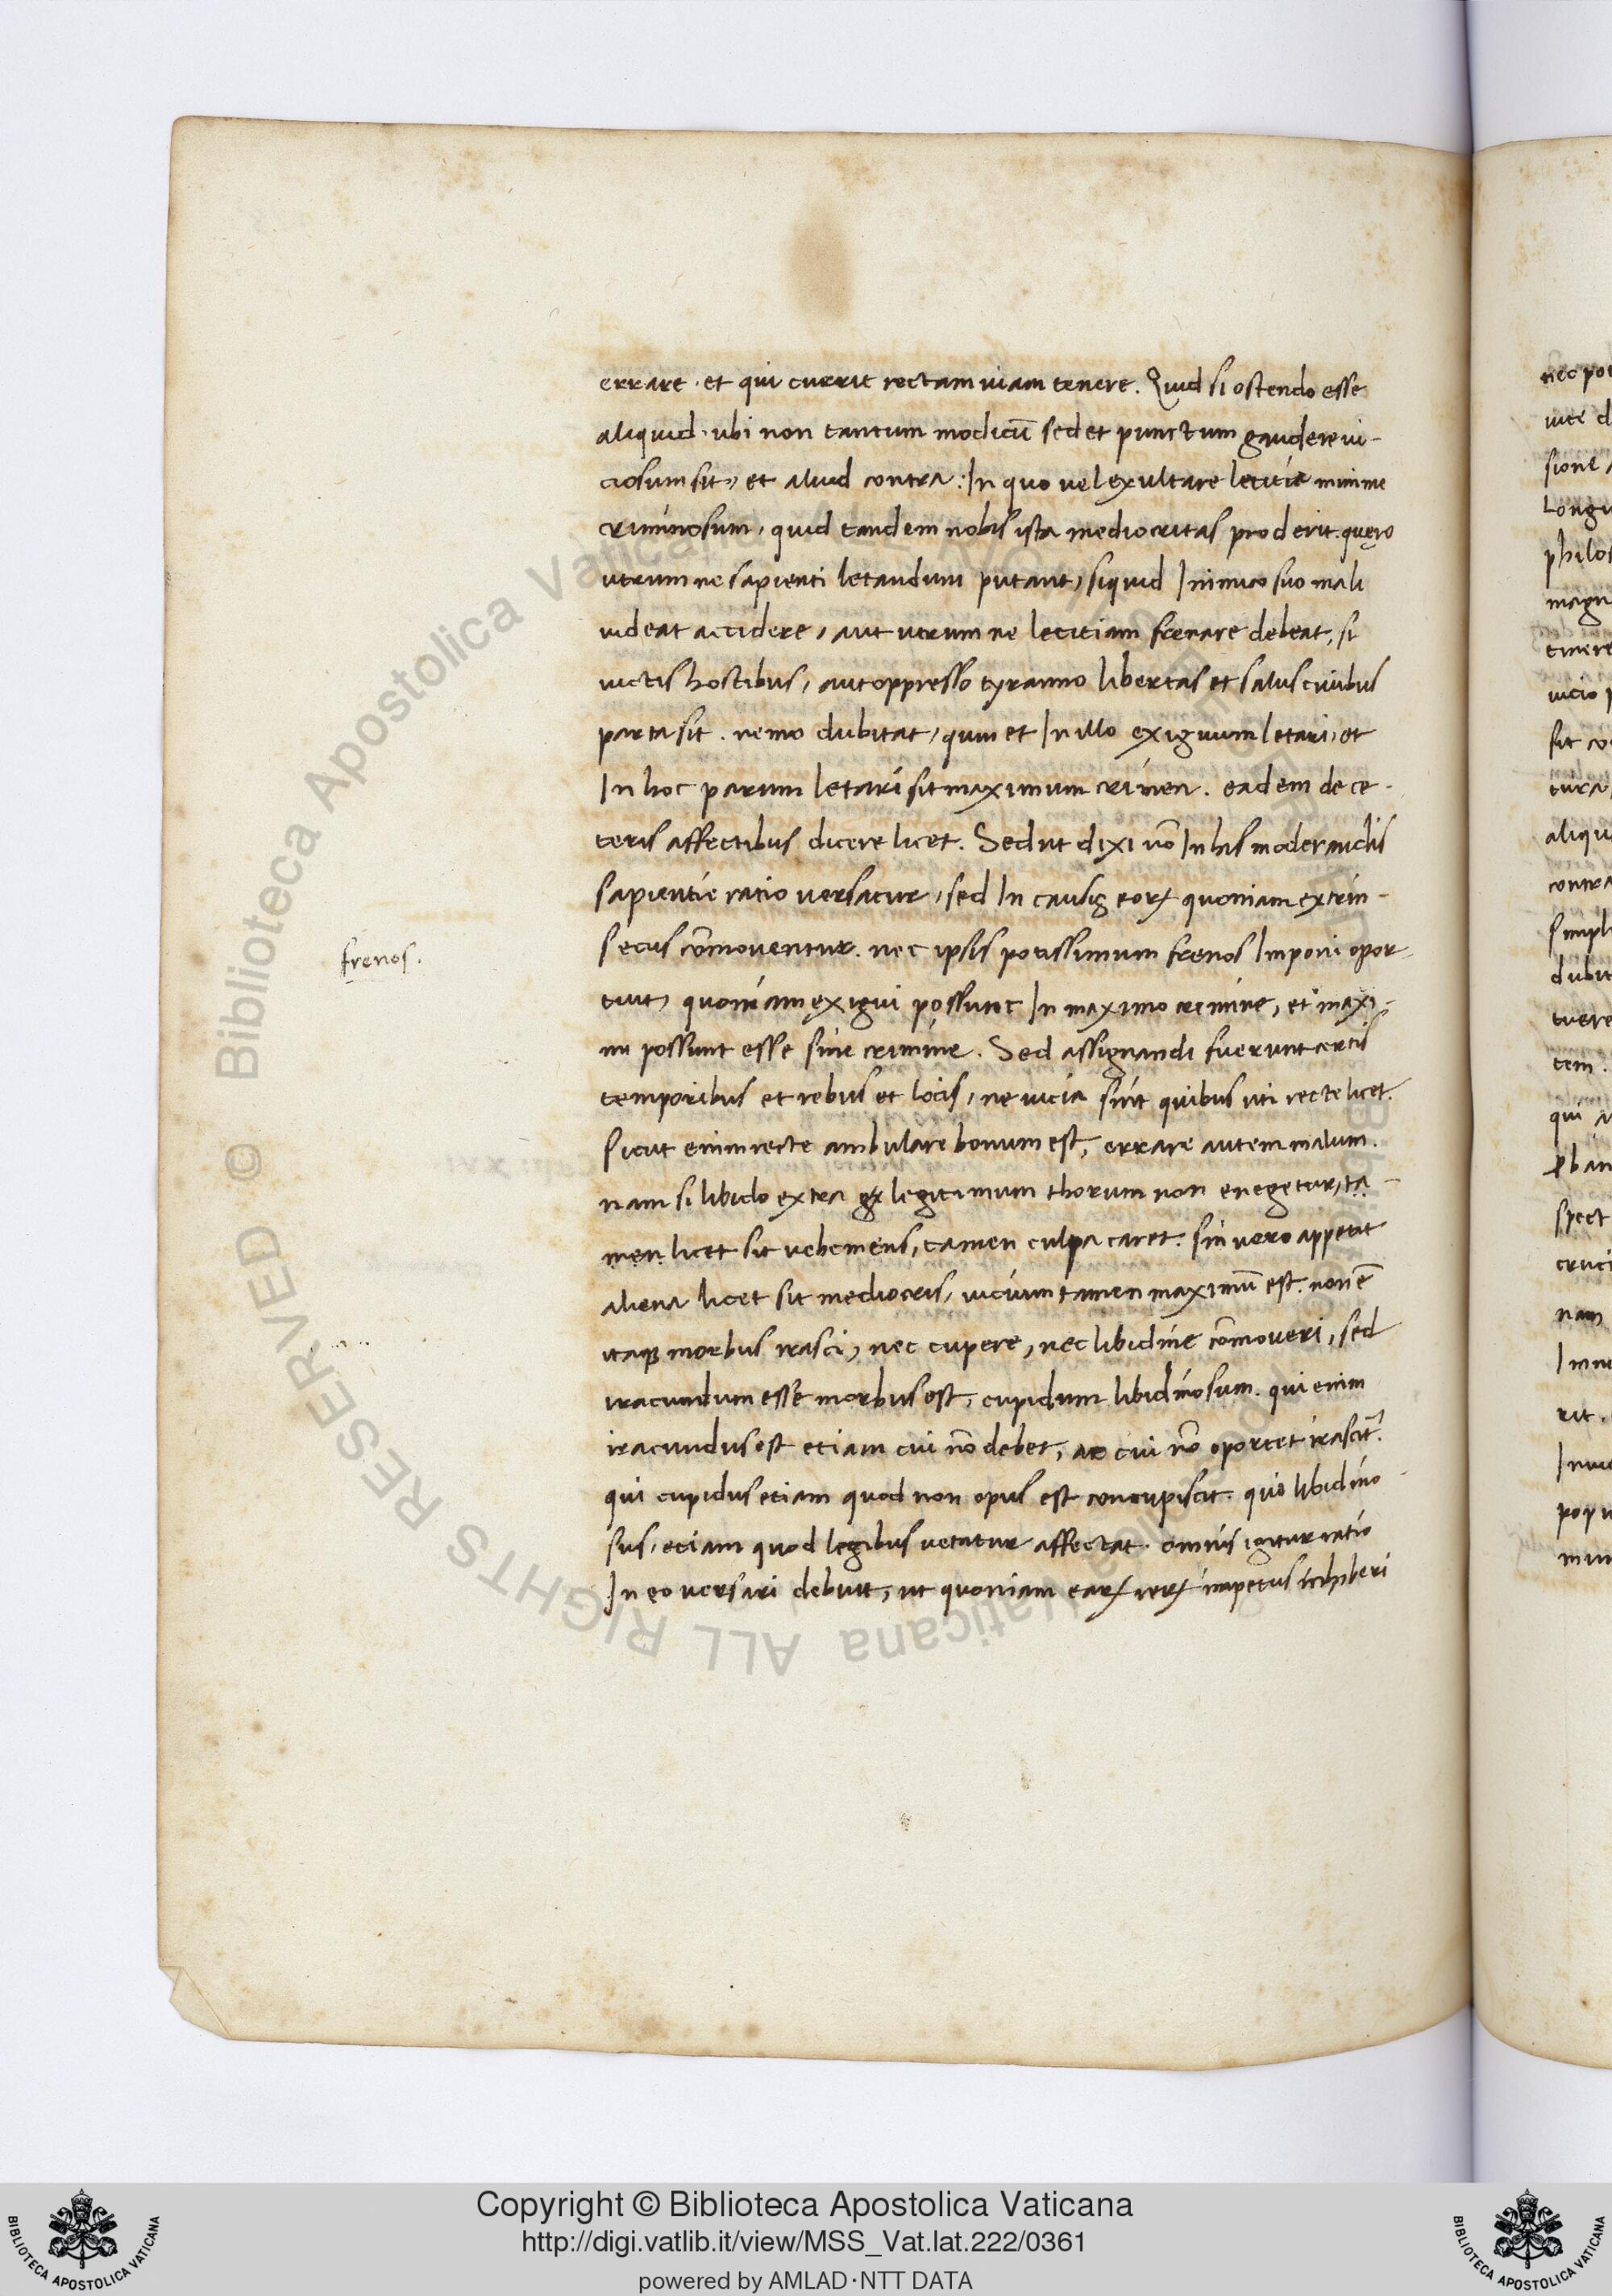 errare · et qui currit rectam uiam tenere. Quid si ostendo esse
aliquid · ubi non tantum modicū sed et punctum gaudere ui-
ciosum sit, et aliud contra: In quo uel exultare letitie minime
criminosum, quid tandem nobis ista mediocritas proderit. quęro
utrum ne sapienti letandum putant, siquid Inimico suo mali
uideat accidere, aut utrum ne letitiam frenare debeat, si
uictis hostibus, aut oppresso tyranno libertas et salus ciuibus
parta sit. nemo dubitat, quin et In illo exiguum letari, et
In hoc parum letari sit maximum crimen. eadem de ce-
teris affectibus dicere licet. Sed ut dixi nō In his moderandis
sapientie ratio uersatur, sed In causis eoꝝ quoniam extrin-
secus cōmouentur. nec ipsis potissimum frenos Imponi opor-
tuit, quoniam exigui possunt In maximo crimine, et maxi-
mi possunt esse sine crimine. Sed assignandi fuerunt certis
temporibus et rebus et locis, ne uicia sint quibus uti recte licet.
Sicut enim recte ambulare bonum est, errare autem malum.
nam si libido extra legitimum thorum non euegetur, ta-
men licet sit uehemens, tamen culpa caret. sin uero appetit
aliena licet sit mediocris, uicium tamen maximū est. non ē
itaqꝫ morbus irasci, nec cupere, nec libidine cōmoueri, sed
iracundum esse morbus est, cupidum libidinosum. qui enim
iracundus est etiam cui nō debet, ac cui nō oportet irascit̄.
qui cupidus etiam quod non opus est concupiscit. qui libidino
sus, etiam quod legibus uetatur affectat. omnis igitur ratio
In eo uersari debuit, ut quoniam earꝝ rerꝝ impetus inhiberi
frenos.
Copyright © Biblioteca Apostolica Vaticana
http://digi.vatlib.it/view/MSS_Vat.lat.222/0361
powered by AMLAD·NTT DATA